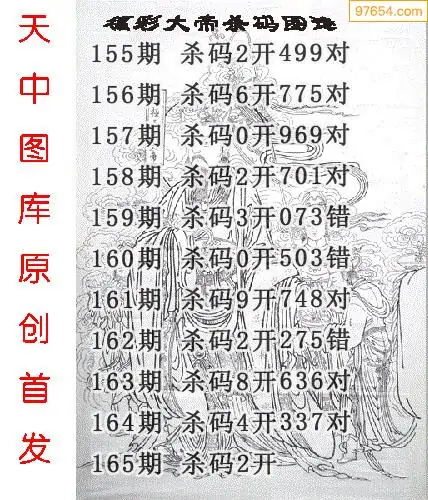 福彩大帝杀码图谜
97654.com
天中图库原创首发
155期 杀码2开499对
156期 杀码6开775对
157期 杀码0开969对
158期 杀码2开701对
159期 杀码3开073错
160期 杀码0开503错
161期 杀码9开748对
162期 杀码2开275错
163期 杀码8开636对
164期 杀码4开337对
165期 杀码2开